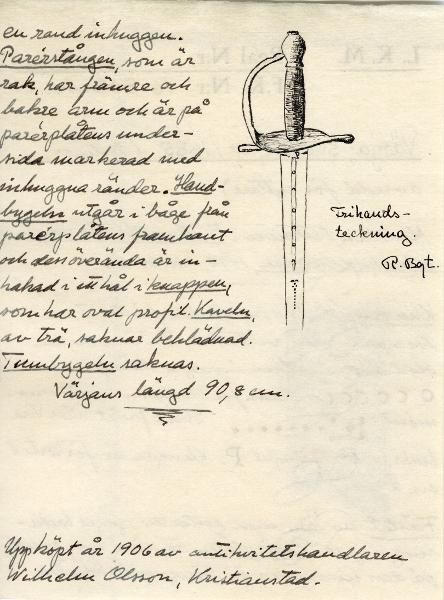 en rand inhuggen.
Parérstången, som är
rak, har främre och
bakre arm och är på
parérplåtens under-
sida markerad med
inhuggna ränder. Hand-
bygeln utgår i båge från
parérplåtens framkant
och dess överända är in-
hakad i ett hål i knappen,
som har oval profil. Kaveln,
av trä, saknar beklädnad.
Tumbygeln saknas.
Värjans längd 90,8 cm.
Frihands-
teckning.
R. Bgt.
Uppköpt år 1906 av antikvitetshandlaren
Wilhelm Olsson, Kristianstad.